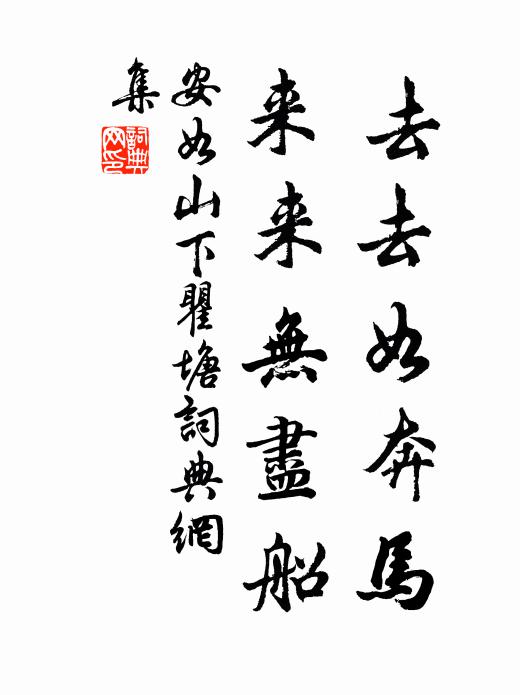 去去如奔馬
来来無盡船
安如山下瞿塘詞典網
集
詞典網印